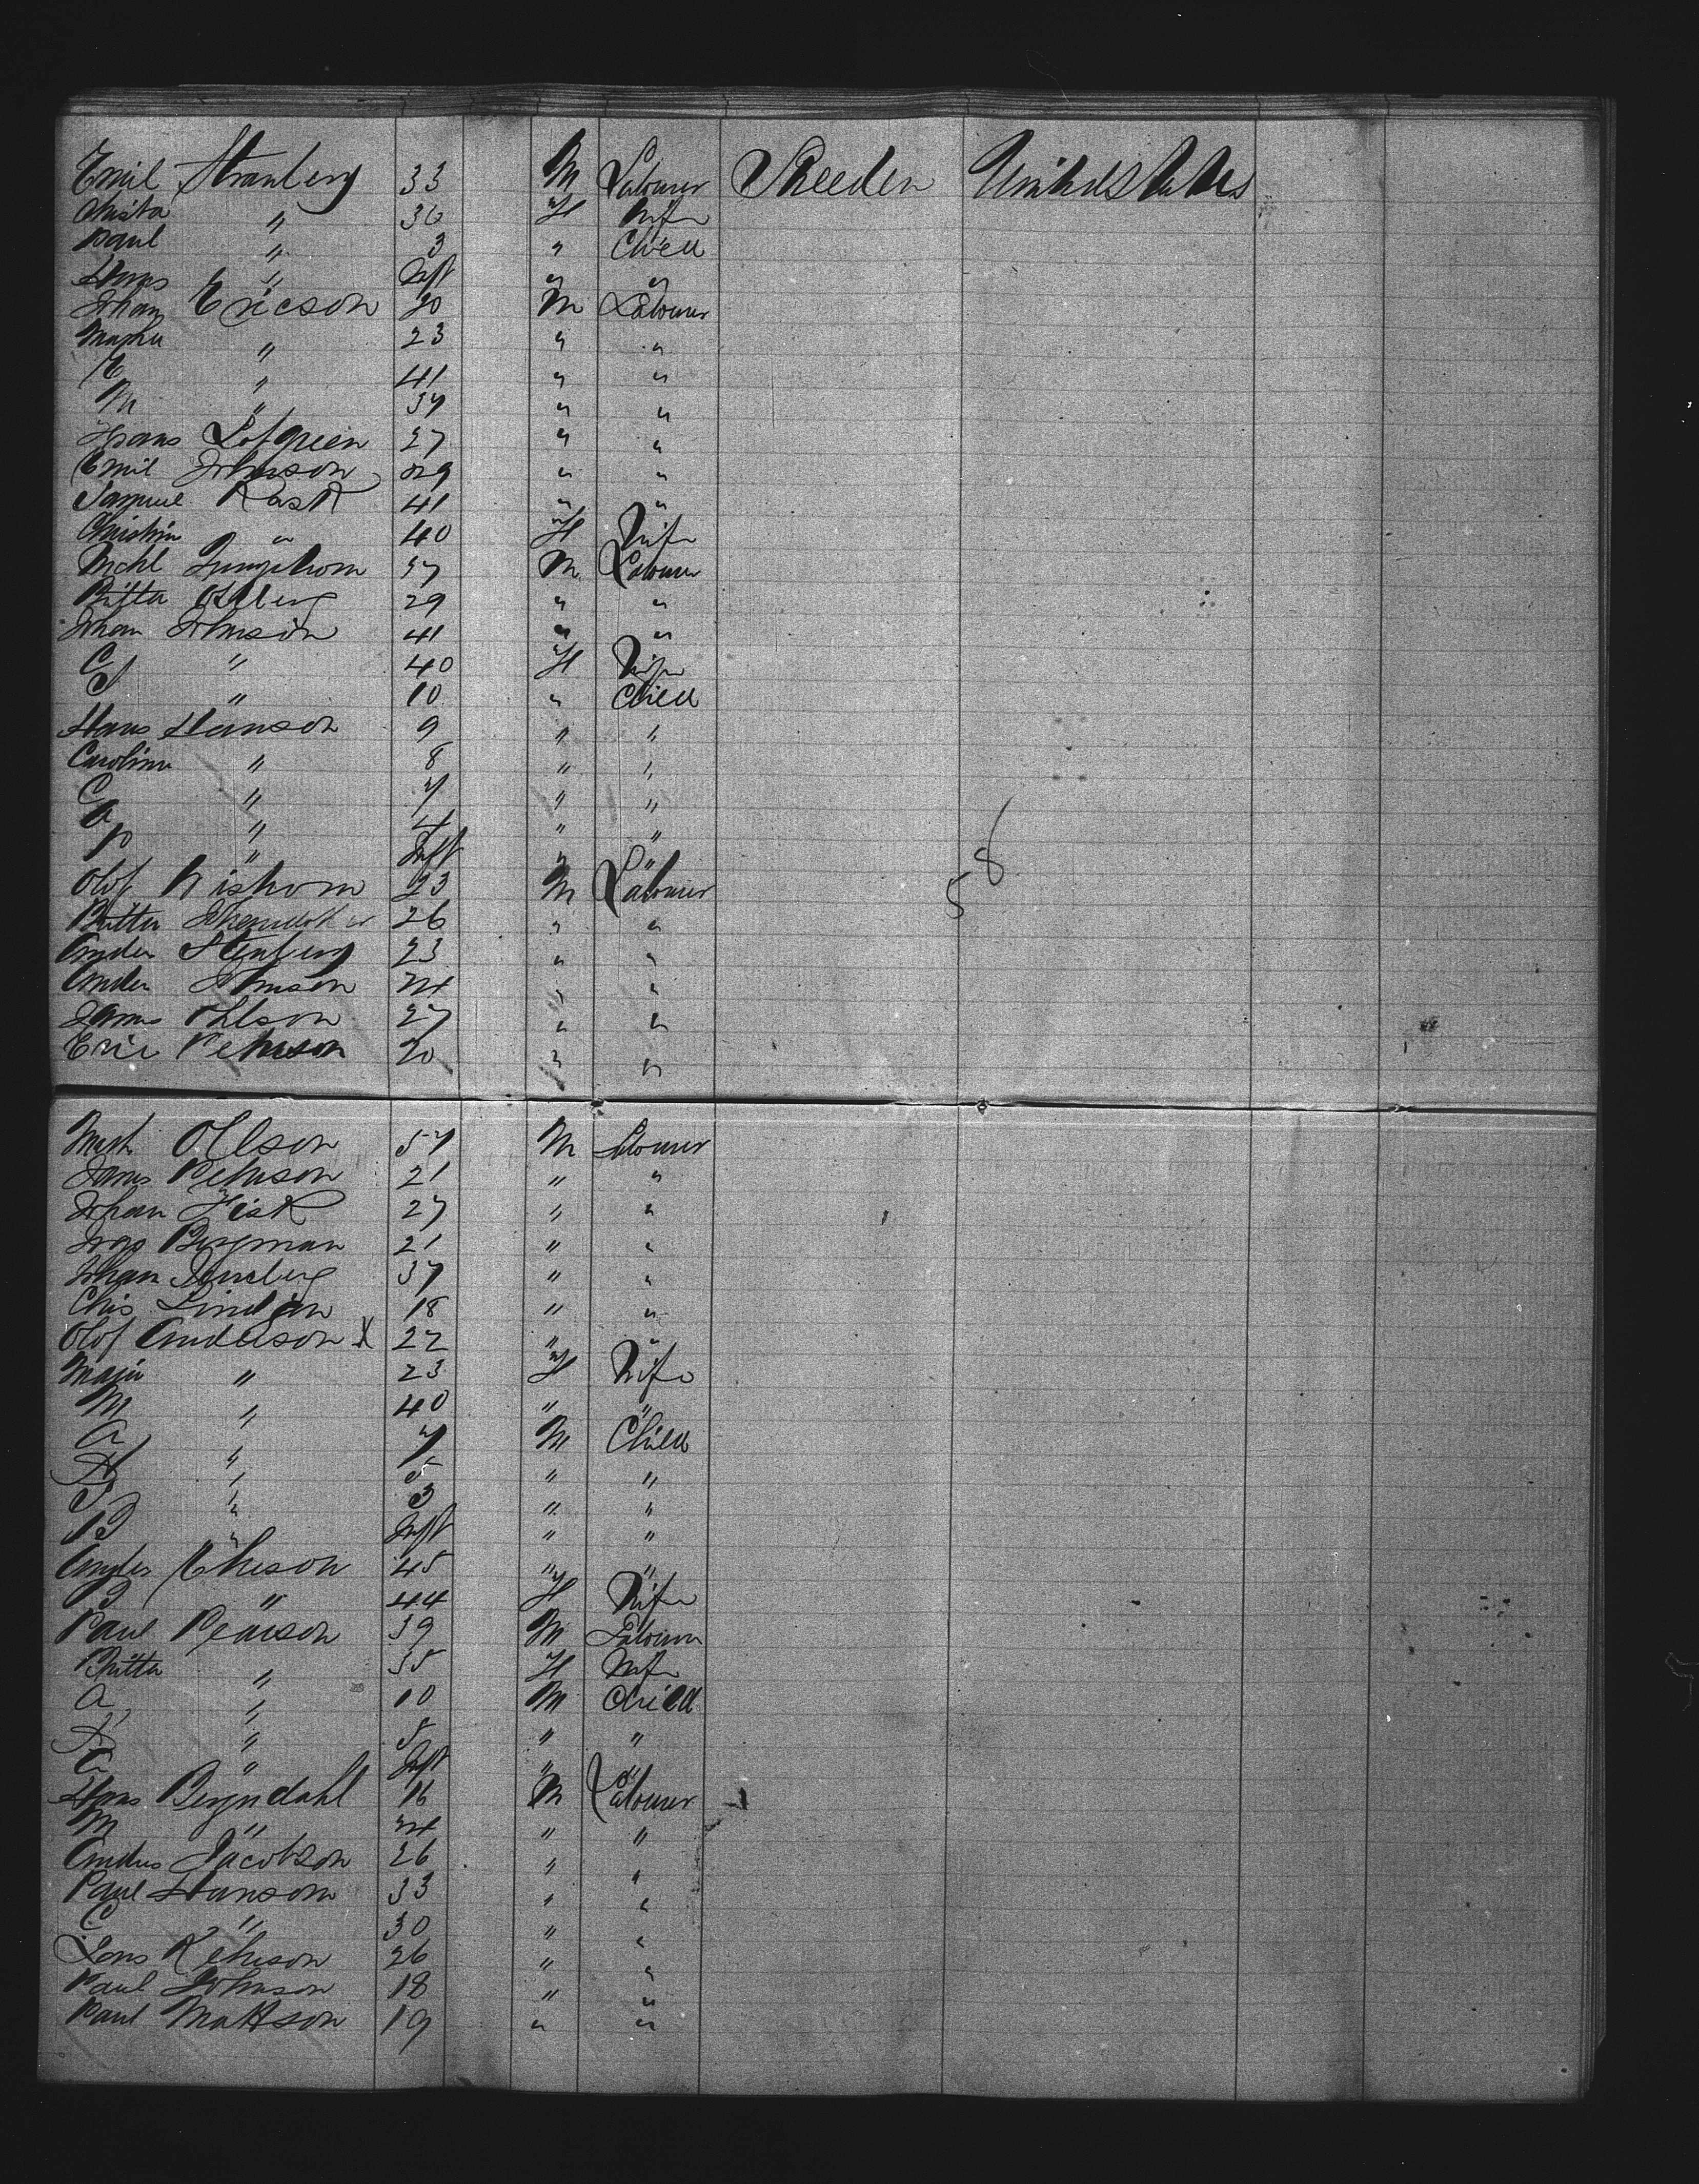 Emil Stranberg 33 M Labourer Sweeden United States
Christa " 30 F Wife
Paul " 3 " Child
Hans " Inft " "
Johan Ericson 20 M Labourer
Martha " 23 " "
E " 41 " "
M " 37 " "
Hans Lofgreen 27 " "
Emil Johnson 29 " "
Samuel Rask 41 " "
Christin " 40 F Wife
Michl Ljungstrom 37 M Labourer
Britta Ohlberg 29 " "
Johan Johnson 41 " "
C " 40 F Wife
S " 10 " Child
Hans Hanson 9 " "
Carolina " 8 " "
C " 7 " "
A " 4 " "
P " Inft " "
Olof Wistrom 23 M Labourer
58
Britta 26 " "
Anders Stenberg 23 " "
Anders Johnson 24 " "
Jonas Ohlson 27 " "
Eric Pehrson 20 " "
Math Ollson 57 M Labourer
Jonas Pehrson 21 " "
Johan Fisk 27 " "
Bergman 21 " "
Johan 37 " "
Chis Lindgrin 18 " "
Olof Anderson X 22 " "
Maja " 23 F Wife
M " 40 " "
A " 7 M Child
A " 5 " "
J " 3 " "
" Inft " "
Anders Ehrson 45 " "
B " 44 F Wife
Paul Pearson 39 M Labourer
Britta " 35 F Wife
A " 10 M Child
A " 5 " "
C " Inft " "
Hans Bergndahl 16 M Labourer
M " 24 " "
Anders Jacobson 26 " "
Paul Hanson 33 " "
C " 30 " "
Lars Pehrson 26 " "
Paul Johnson 18 " "
Paul Mattson 19 " "